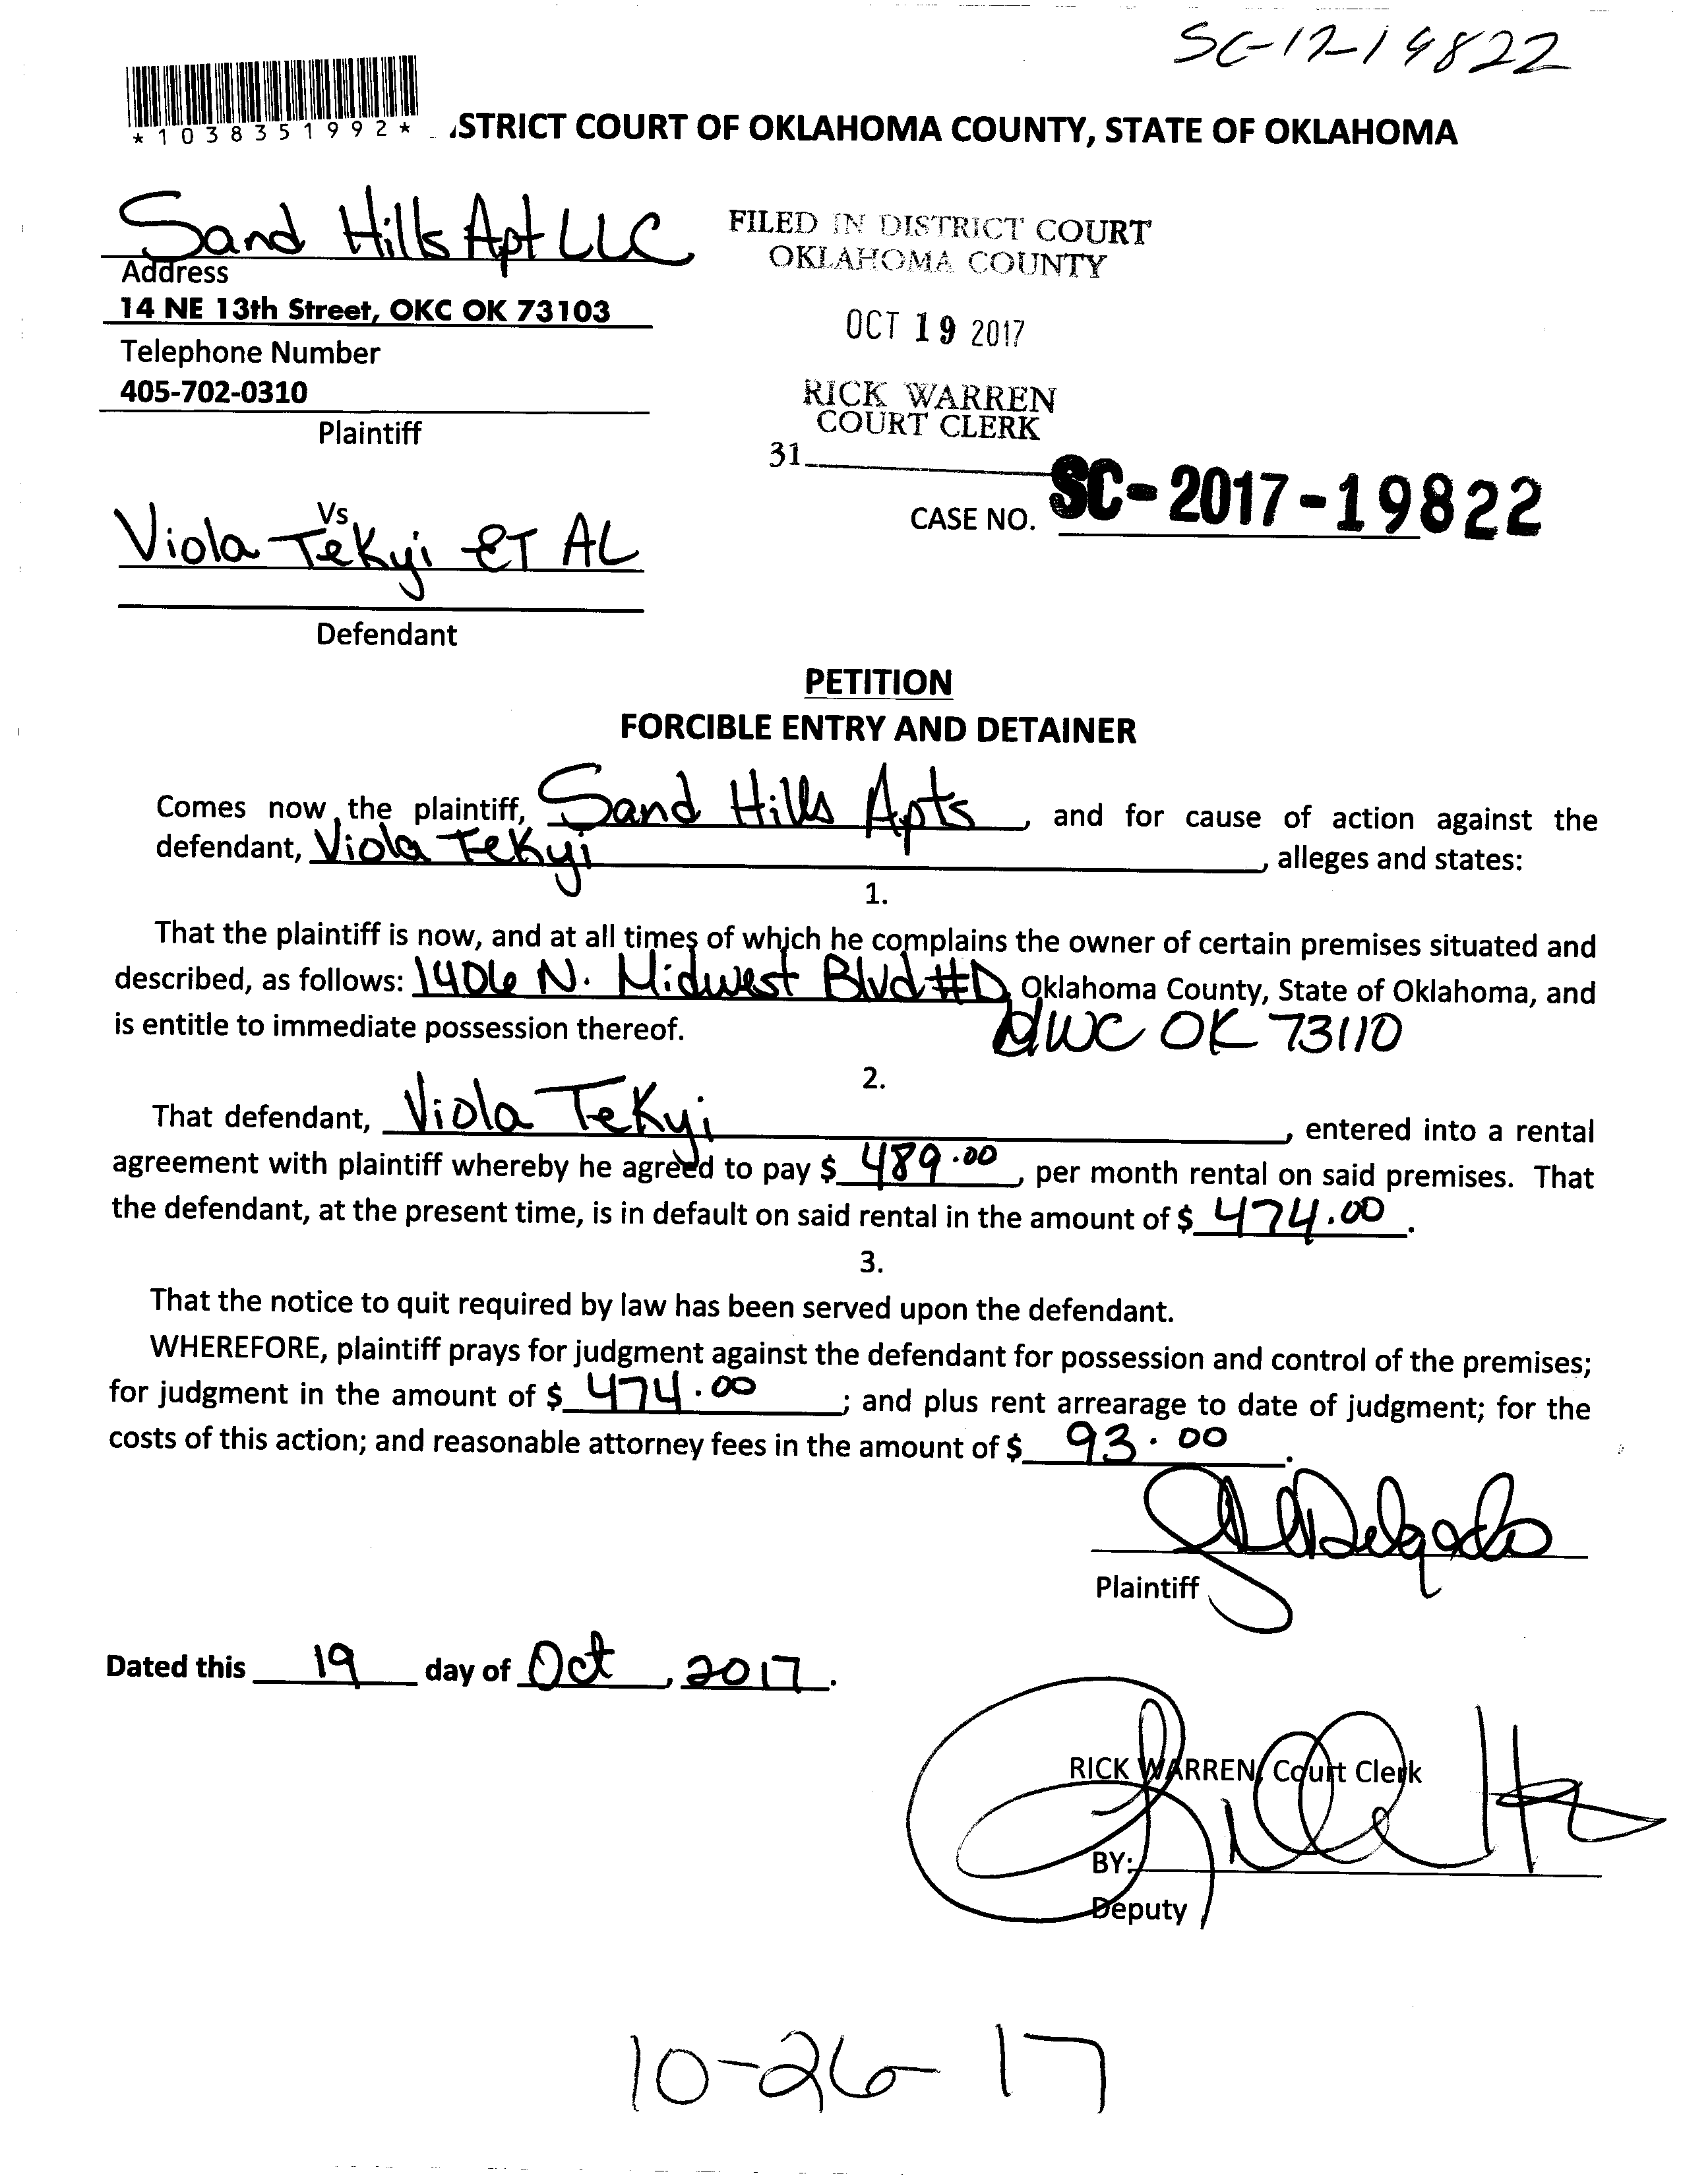 SC-17-19822
*1038351992*
STRICT COURT OF OKLAHOMA COUNTY, STATE OF OKLAHOMA
Sand Hills Apt LLC
Address
14 NE 13th Street, OKC OK 73103
Telephone Number
405-702-0310
Plaintiff
FILED IN DISTRICT COURT
OKLAHOMA COUNTY
OCT 19 2017
RICK WARREN
COURT CLERK
31
CASE NO. SC-2017-19822
Vs
Viola Tekyi ET AL
Defendant
PETITION
FORCIBLE ENTRY AND DETAINER
Comes now the plaintiff, Sand Hills Apts, and for cause of action against the
defendant, Viola Tekyi, alleges and states:
1.
That the plaintiff is now, and at all times of which he complains the owner of certain premises situated and
described, as follows: 1406 N. Midwest Blvd #D, Oklahoma County, State of Oklahoma, and
is entitle to immediate possession thereof. MWC OK 73110
2.
That defendant, Viola Tekyi, entered into a rental
agreement with plaintiff whereby he agreed to pay $ 489.00, per month rental on said premises. That
the defendant, at the present time, is in default on said rental in the amount of $ 474.00.
3.
That the notice to quit required by law has been served upon the defendant.
WHEREFORE, plaintiff prays for judgment against the defendant for possession and control of the premises;
for judgment in the amount of $ 474.00; and plus rent arrearage to date of judgment; for the
costs of this action; and reasonable attorney fees in the amount of $ 93.00.
Delgado
Plaintiff
Dated this 19 day of Oct, 2017.
RICK WARREN, Court Clerk
BY:
Deputy
10-26-17